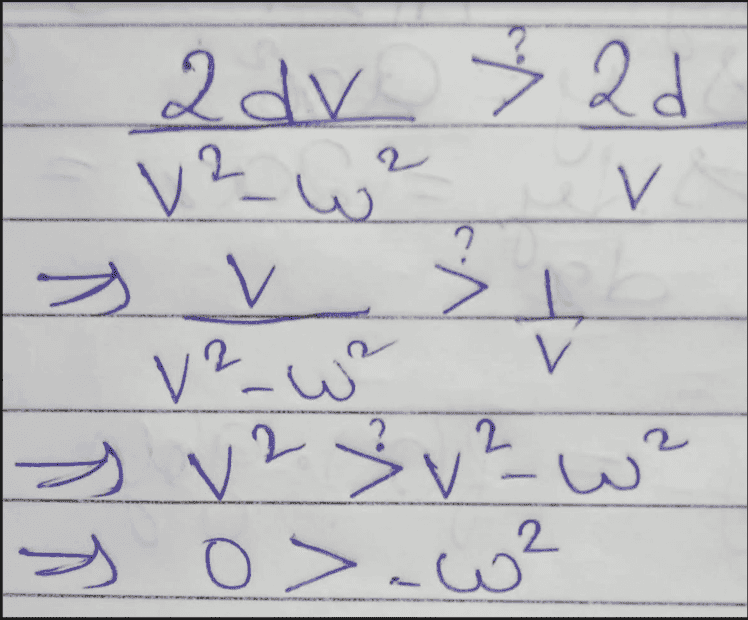 2dv/(v²-ω²) >? 2d/v
⇒ v/(v²-ω²) >? 1/v
⇒ v² >? v²-ω²
⇒ 0 > -ω²